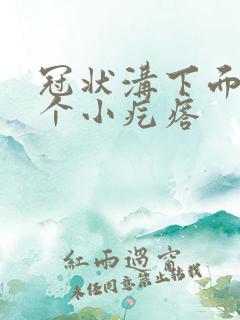 冠状溝下面
个小疙瘩
紅雨過窗
未经同意禁止转载